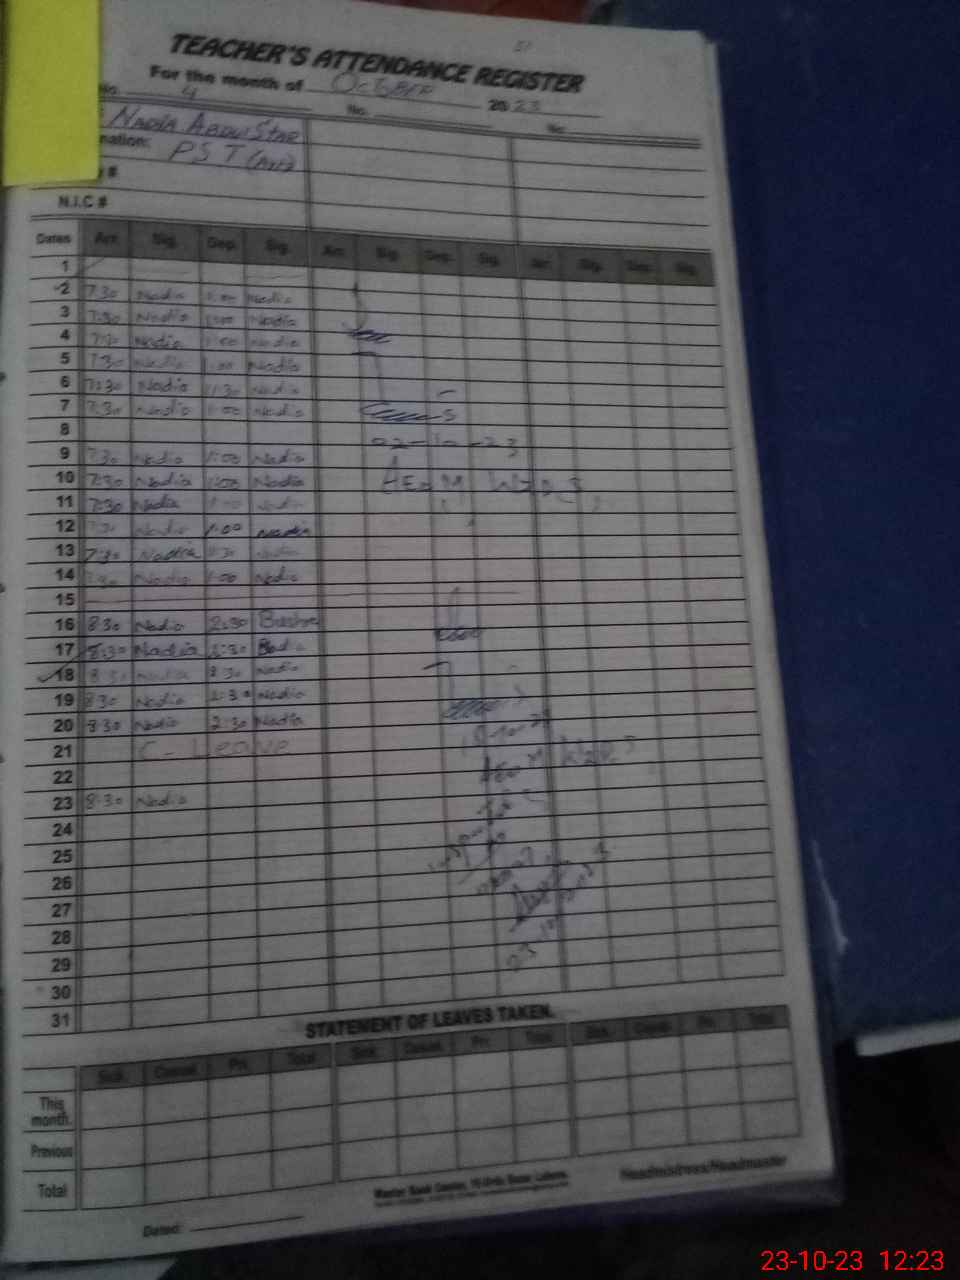 TEACHER'S ATTENDANCE REGISTER
For the month of October 2023
No. 4 No. No.
Nadia Abdul Star
nation: PST
#
N.I.C #
Dates Arr. Sig. Dep. Sig. Arr. Sig. Dep. Sig. Arr. Sig. Dep. Sig.
1
2 7:30 Nadia 1:00 Nadia
3 7:30 Nadia 1:00 Nadia
4 7:30 Nadia 1:00 Nadia
5 7:30 Nadia 1:00 Nadia
6 7:30 Nadia 11:30 Nadia
7 7:30 Nadia 1:00 Nadia
8 02-10-23
9 7:30 Nadia 1:00 Nadia
10 7:30 Nadia 1:00 Nadia
11 7:30 Nadia 1:00 Nadia
12 7:30 Nadia 1:00 Nadia
13 7:30 Nadia Nadia
14 7:30 Nadia 1:00 Nadia
15
16 8:30 Nadia 2:30
17 8:30 Nadia 2:30
18 8:30 Nadia 2:30 Nadia
19 8:30 Nadia 2:30 Nadia
20 8:30 Nadia 2:30 Nadia
21 C-Leave
22
23 8:30 Nadia
24
25
26
27
28
29
30
31
STATEMENT OF LEAVES TAKEN.
Sick. Casual. Pri. Total Sick. Casual. Pri. Total Sick. Casual. Pri. Total
This month.
Previous
Total
Headmistress/Headmaster
Dated:
23-10-23 12:23